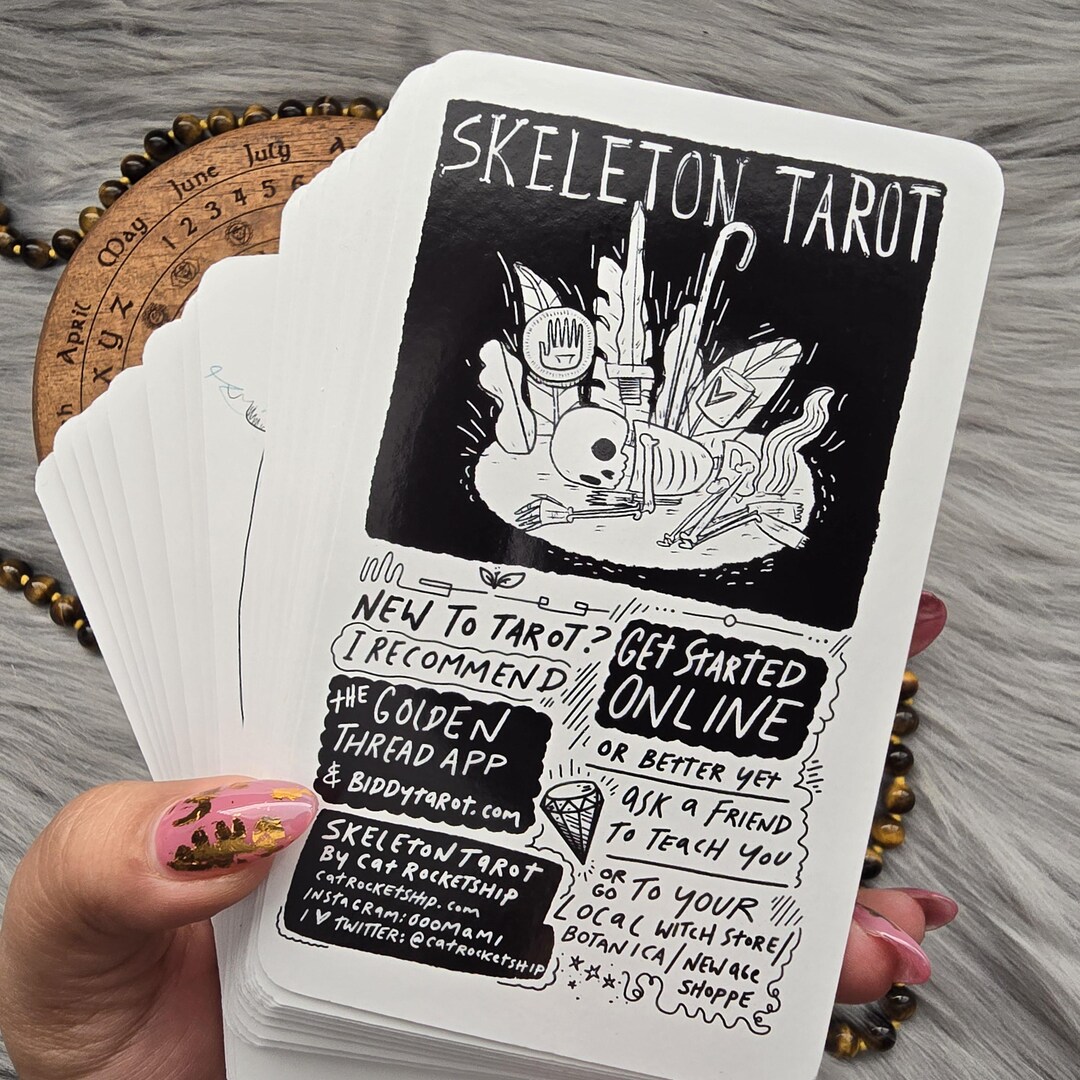 SKELETON TAROT
NEW TO TAROT?
I RECOMMEND
THE GOLDEN
THREAD APP
& BIDDYTAROT.COM
SKELETON TAROT
BY CAT ROCKETSHIP
CATROCKETSHIP.COM
INSTAGRAM: OOOMAMI
I ♥ TWITTER: @CATROCKETSHIP
GET STARTED
ONLINE
OR BETTER YET
ASK A FRIEND
TO TEACH YOU
OR GO TO YOUR
LOCAL WITCH STORE/
BOTANICA/NEW AGE
SHOPPE
April May June July
X y z 1 2 3 4 5 6